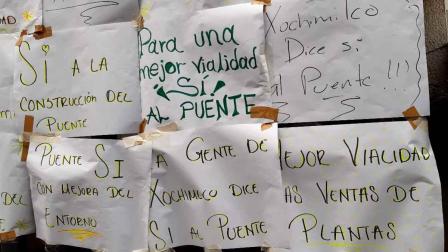 DAD
Sí A LA
CONSTRUCCIÓN DEL
PUENTE
Para una
mejor vialidad
¡SÍ!
AL PUENTE
Xochimilco
Dice si
al Puente !!!
PUENTE SI
CON MEJORA DEL
ENTORNO
A GENTE DE
XOCHIMILCO DICE
SI AL PUENTE
EJOR VIALIDAD
AS VENTAS DE
PLANTAS
DEL